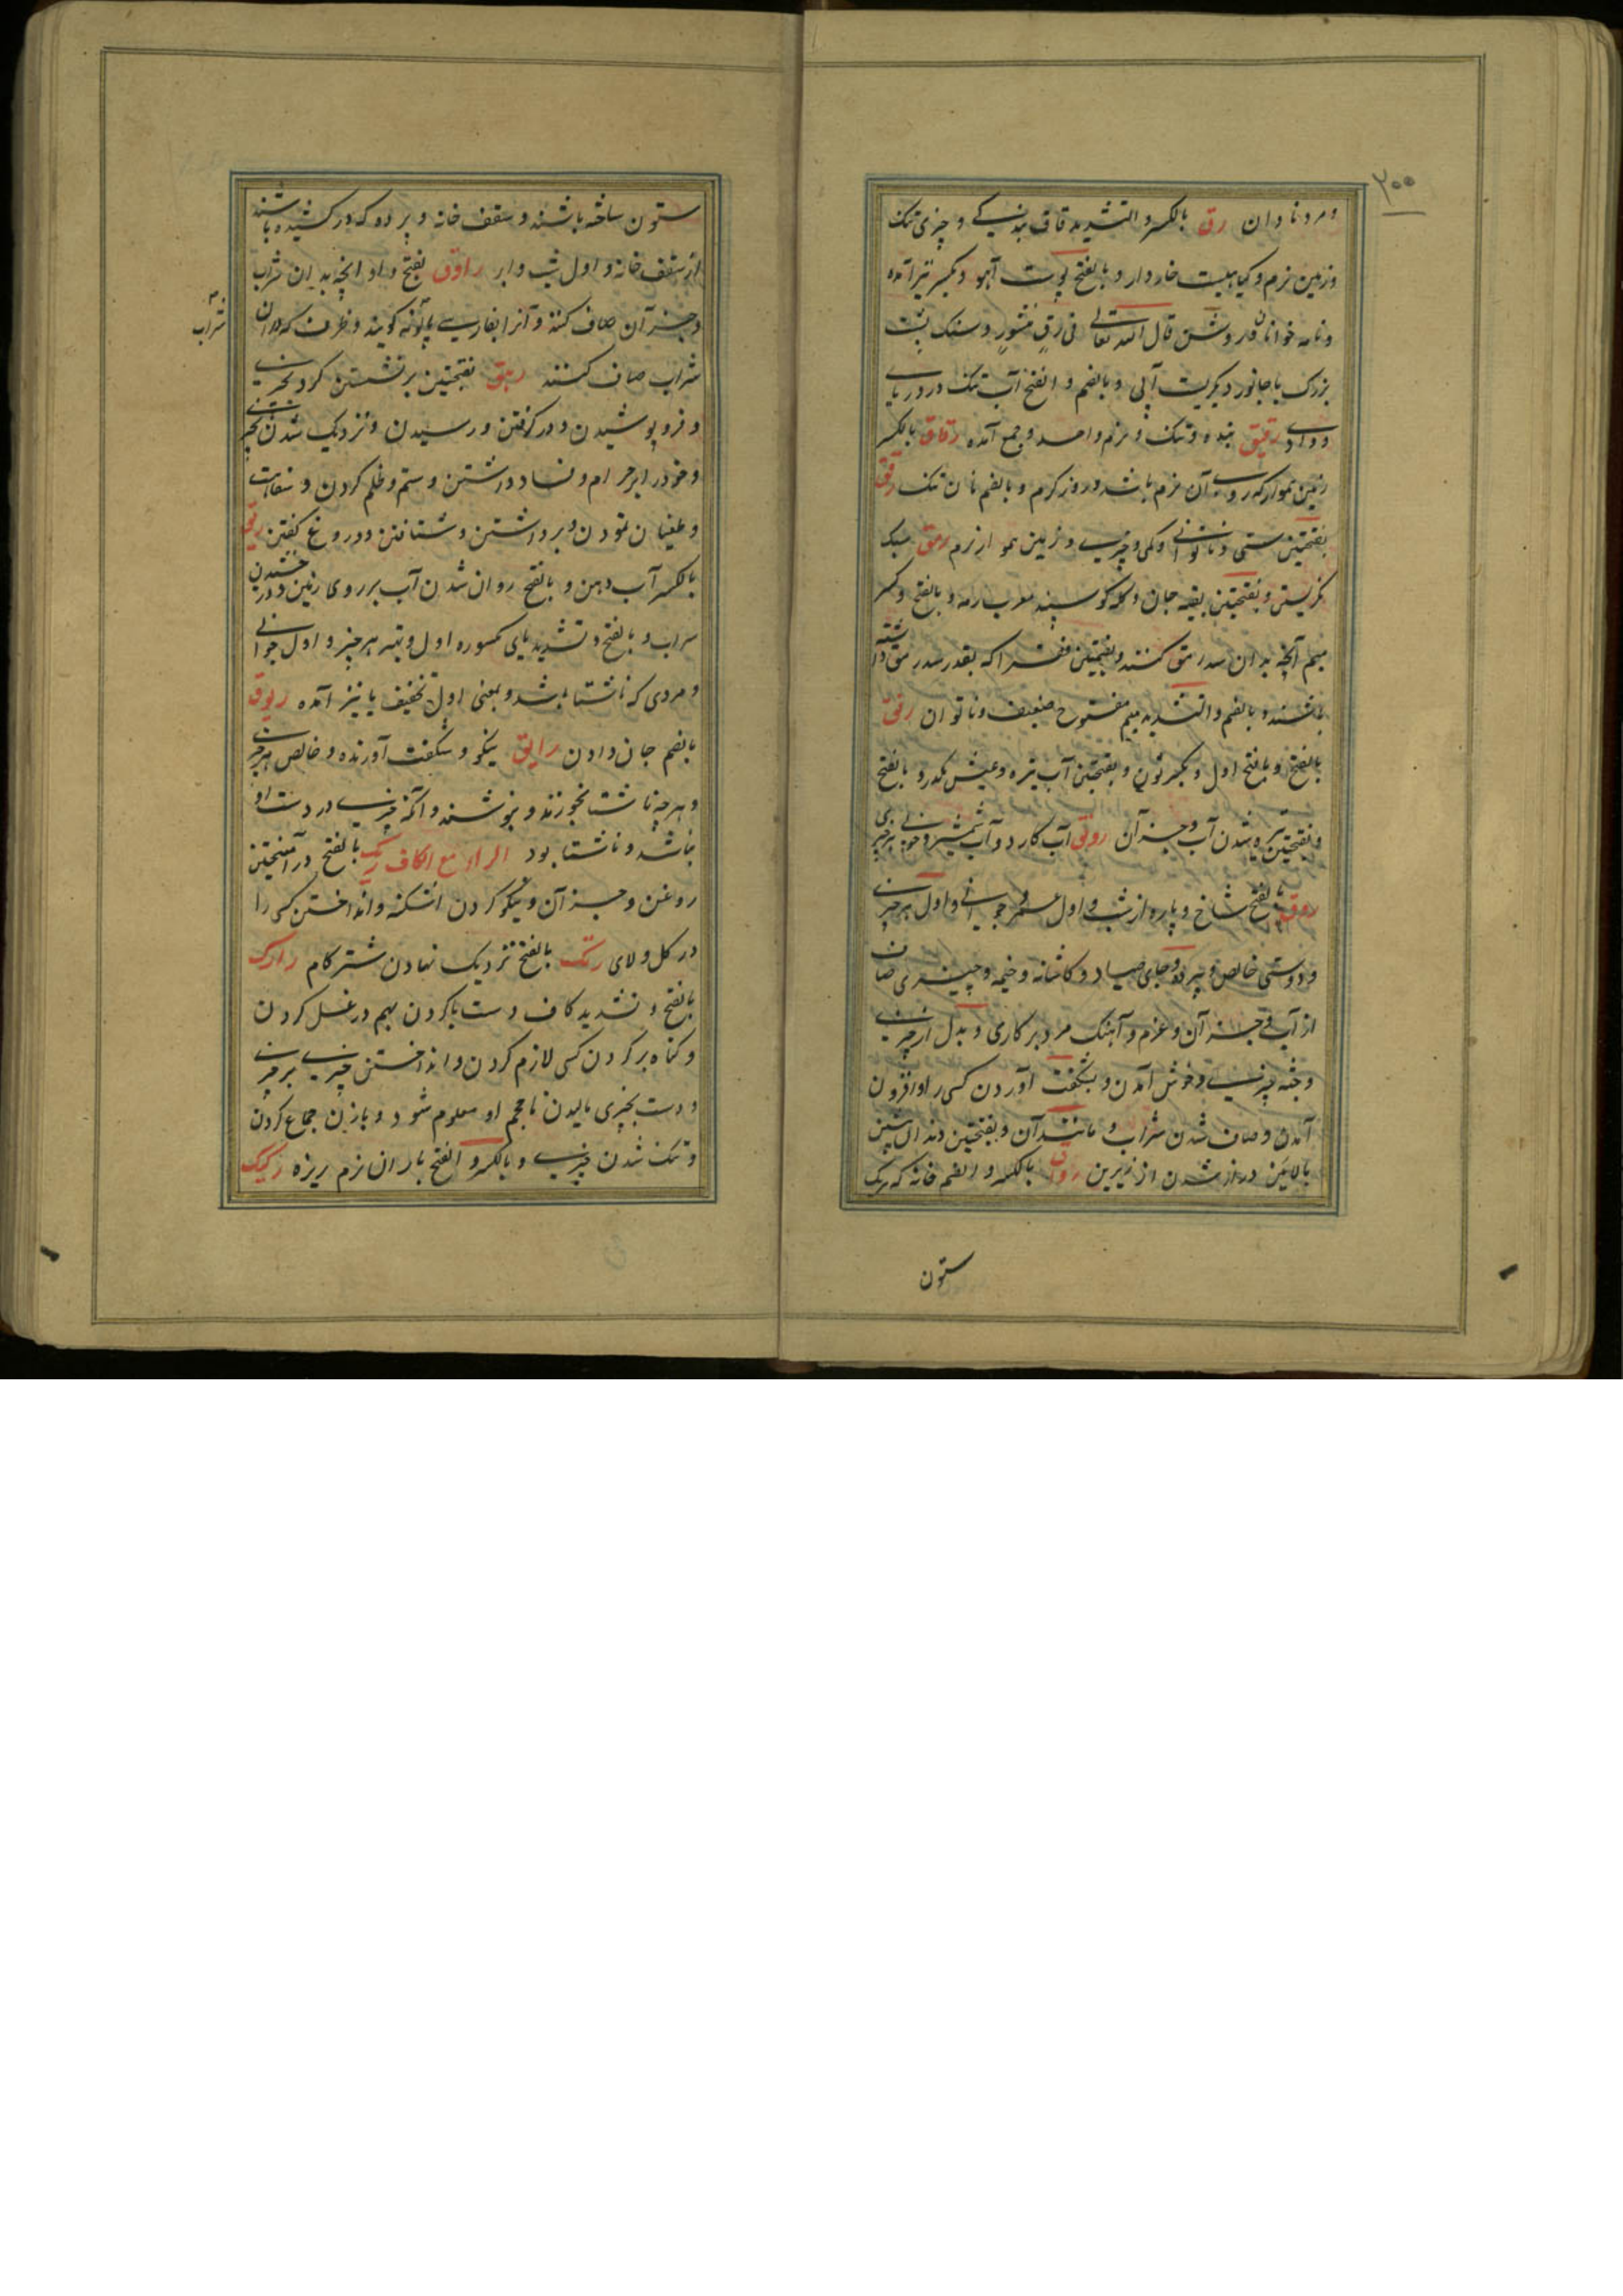 ۳۰۰
ومرد نادان رق بالکسر والتشدید قاف بندکی و چیزی تنک
وزمین نرم و کیاهیست خاردار و بالفتح پوست آهو و بکسر نیز آمده
ونامه خوانان و روشن قال الله تعالی فی رق منشور و سنک پشت
بزرک یا جانور دیکریست آبی و بالضم و الفتح آب تنک در دریا
رقیق بنده و تنک و نرم واحد و جمع آمده رقاق بالکسر
زمین هموار که روی آن نرم باشد و روز کرم و بالضم نان تنک رقق
بفتحتین سستی و ناتوانی و کمی چیزی و زمین هموار نرم رمق سبک
نکریستن و بفتحتین بقیه جان و کله کوسپند معرب رمه و بالفتح و کسر
میم آنچه بدان سد رمق کنند و بضمتین فقرا که بقدر سد رمق داشته
باشند و بالضم والتشدید میم مفتوح ضعیف و ناتوان رنق
بالفتح و بالفتح اول و بکسر نون و بفتحتین آب تیره و عیش مکدر و بالفتح
و بفتحتین تیره شدن آب و جز آن رونق آب کارد و آب شمشیر و خوبی هر چیزی
روق بالفتح شاخ و پاره از شب و اول عمر و جوانی و اول هر چیزی
و دوستی خالص و پرده و جای صیاد و کاشانه و خیمه و چیزی صاف
از آب و جز آن و عزم و آهنک مرد بر کاری و بدل از چیزی
و جثه چیزی و خوش آمدن و بشکفت آوردن کسی را و افزون
آمدن و صاف شدن شراب و مانند آن و بفتحتین دندان پیشین
بالائین دراز شدن از زیرین رواق بالکسر و الضم خانه که بر یک
ستون
ستون ساخته باشند و سقف خانه و پرده که در کشیده باشند
از سقف خانه و اول شب و ابر راوق بفتح واو آنچه بدان شراب
و جز آن صاف کنند و آنرا بفارسی پالونه کویند و ظرف که دران
شراب
شراب صاف کنند رهق بفتحتین بر نشستن کرد بچیزی
و فرو پوشیدن و در کرفتن و رسیدن و نزدیک شدن بچیزی
و خود را بر حرام و فساد داشتن و ستم و ظلم کردن و سفاهت
و طغیان نمودن و برداشتن و شتافتن و دروغ کفتن ریق
بالکسر آب دهن و بالفتح روان شدن آب بر روی زمین و درخشیدن
سراب و بالفتح و تشدید یای مکسوره اول و بهتر هر چیز و اول جوانی
و مردی که ناشتا باشد و بمعنی اول تخفیف یا نیز آمده ریوق
بالضم جان دادن رایق نیکو و شکفت آورنده و خالص هر چیزی
و هر چه ناشتا بخورند و بنوشند و آنکه چیزی در دست او
نباشد و ناشتا بود الراء مع الکاف ربک بالفتح در آمیختن
روغن و جز آن و نیکو کردن اشکنه و انداختن کسی را
در کل و لای رتک بالفتح نزدیک نهادن شتر کام رک
بالفتح و تشدید کاف دست پا کردن بهم در غسل کردن
و کناه بر کردن کسی لازم کردن و انداختن چیزی بر چیزی
و دست بچیزی مالیدن تا حجم او معلوم شود و بازن جماع کردن
و تنک شدن چیزی و بالکسر و الفتح باران نرم ریزه رکیک